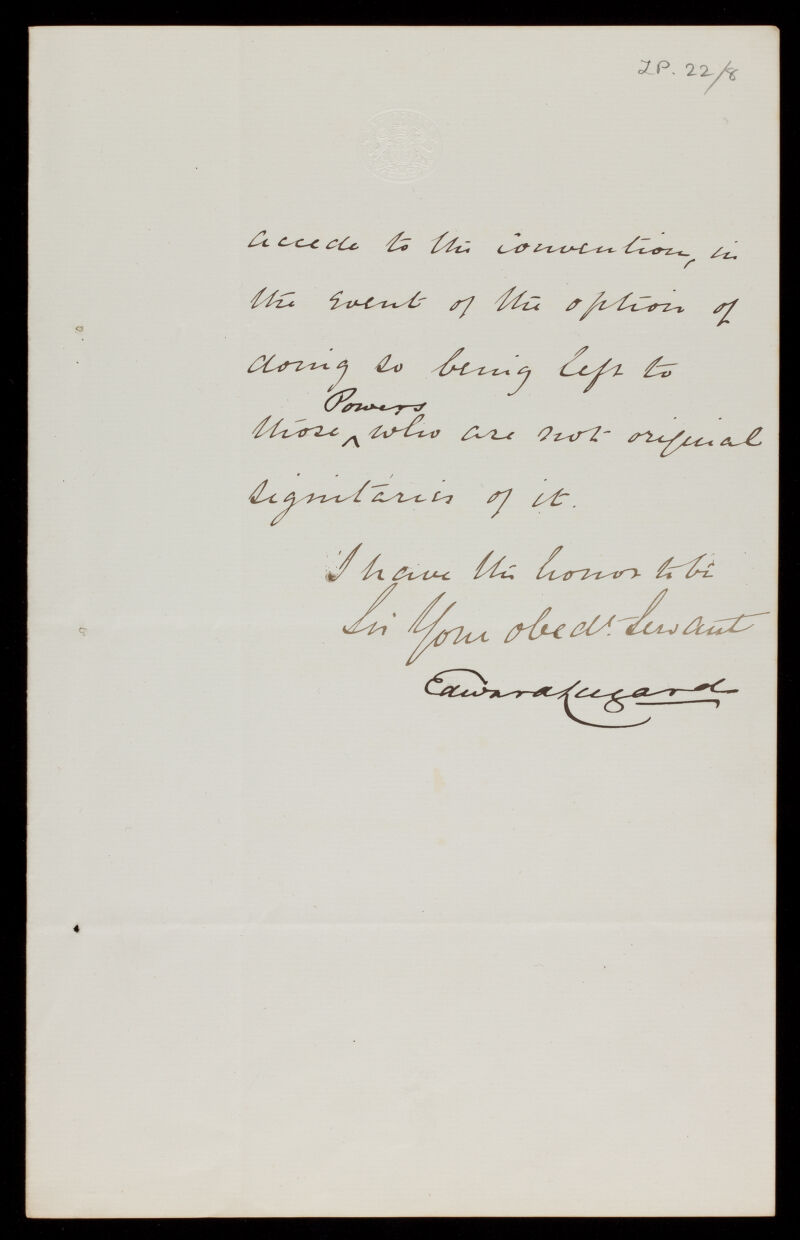 LP. 22/8
accede to the convention, in
the event of the option of
doing so being left to
Powers
those ^ who are not original
signitaries of it.
I have the honor to be
Sir Your obedt. Servant
Edward Lugard